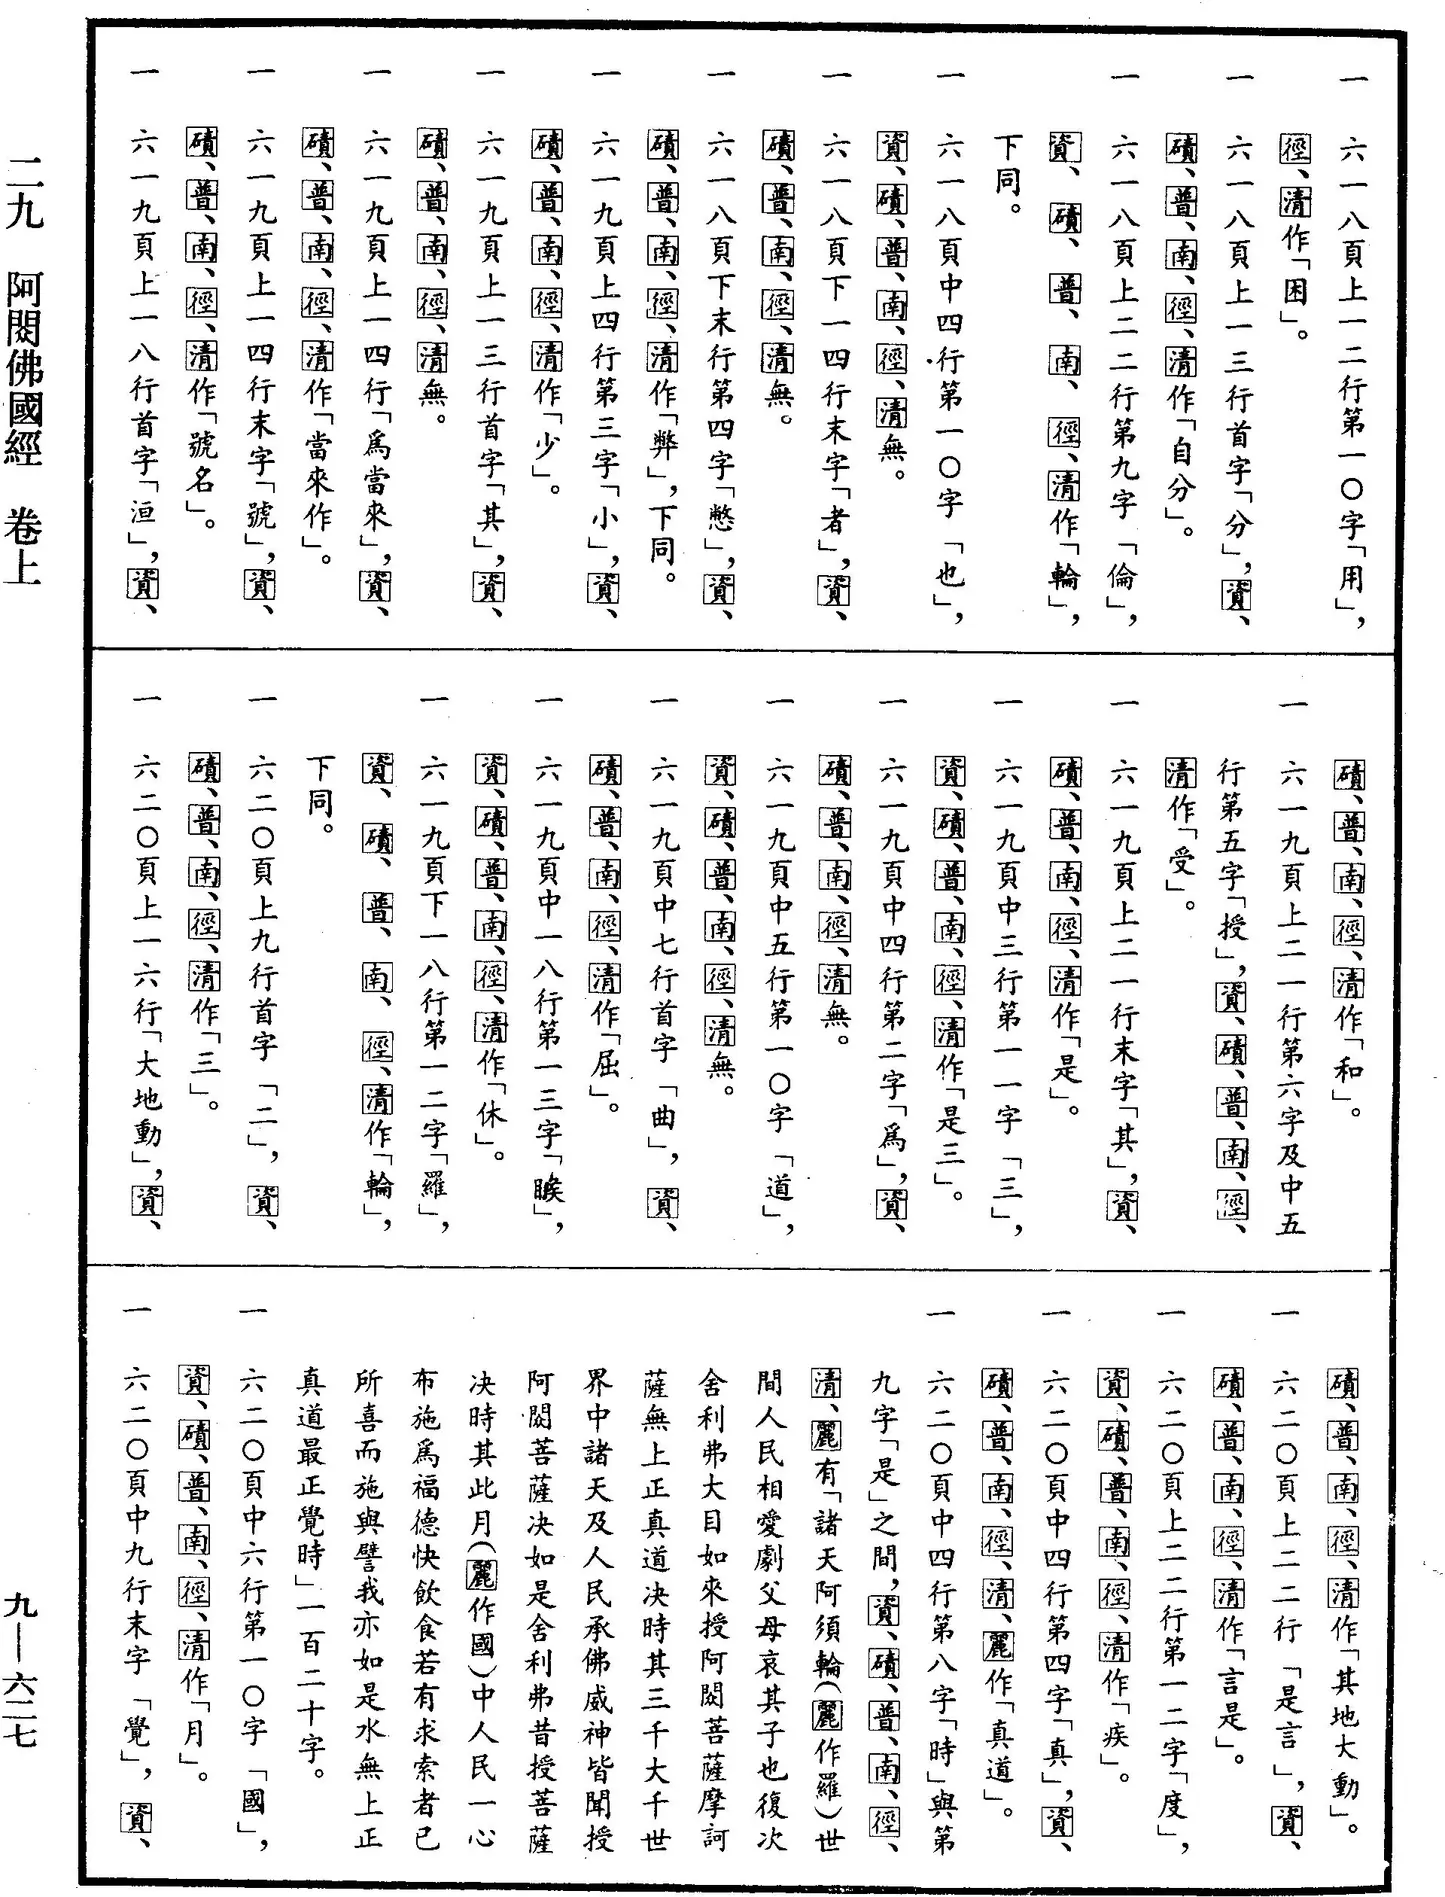 一　六一八頁上一二行第一〇字「用」，
徑、清作「困」。
一　六一八頁上一三行首字「分」，資、
磧、普、南、徑、清作「自分」。
一　六一八頁上二二行第九字「倫」，
資、磧、普、南、徑、清作「輪」，
下同。
一　六一八頁中四行第一〇字「也」，
資、磧、普、南、徑、清無。
一　六一八頁下一四行末字「者」，資、
磧、普、南、徑、清無。
一　六一八頁下末行第四字「憋」，資、
磧、普、南、徑、清作「弊」，下同。
一　六一九頁上四行第三字「小」，資、
磧、普、南、徑、清作「少」。
一　六一九頁上一三行首字「其」，資、
磧、普、南、徑、清無。
一　六一九頁上一四行「爲當來」，資、
磧、普、南、徑、清作「當來作」。
一　六一九頁上一四行末字「號」，資、
磧、普、南、徑、清作「號名」。
一　六一九頁上一八行首字「洹」，資、
磧、普、南、徑、清作「和」。
一　六一九頁上二一行第六字及中五
行第五字「授」，資、磧、普、南、徑、
清作「受」。
一　六一九頁上二一行末字「其」，資、
磧、普、南、徑、清作「是」。
一　六一九頁中三行第一一字「三」，
資、磧、普、南、徑、清作「是三」。
一　六一九頁中四行第二字「爲」，資、
磧、普、南、徑、清無。
一　六一九頁中五行第一〇字「道」，
資、磧、普、南、徑、清無。
一　六一九頁中七行首字「曲」，資、
磧、普、南、徑、清作「屈」。
一　六一九頁中一八行第一三字「睺」，
資、磧、普、南、徑、清作「休」。
一　六一九頁下一八行第一二字「羅」，
資、磧、普、南、徑、清作「輪」，
下同。
一　六二〇頁上九行首字「二」，資、
磧、普、南、徑、清作「三」。
一　六二〇頁上一六行「大地動」，資、
磧、普、南、徑、清作「其地大動」。
一　六二〇頁上二二行「是言」，資、
磧、普、南、徑、清作「言是」。
一　六二〇頁上二二行第一二字「度」，
資、磧、普、南、徑、清作「疾」。
一　六二〇頁中四行第四字「真」，資、
磧、普、南、徑、清、麗作「真道」。
一　六二〇頁中四行第八字「時」與第
九字「是」之間，資、磧、普、南、徑、
清、麗有「諸天阿須輪（麗作羅）世
間人民相愛劇父母哀其子也復次
舍利弗大目如來授阿閦菩薩摩訶
薩無上正真道決時其三千大千世
界中諸天及人民承佛威神皆聞授
阿閦菩薩決如是舍利弗昔授菩薩
决時其此月（麗作國）中人民一心
布施爲福德快飲食若有求索者已
所喜而施與譬我亦如是水無上正
真道最正覺時」一百二十字。
一　六二〇頁中六行第一〇字「國」，
資、磧、普、南、徑、清作「月」。
一　六二〇頁中九行末字「覺」，資、
二九　阿閦佛國經　卷上
九—六二七